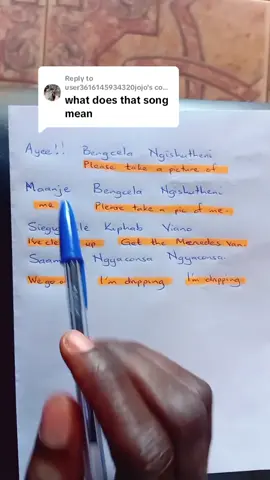 Reply to
user3616145934320jojo's co...
what does that song
mean
Ayee!! Bengcela Ngishutheni
Please take a picture of
Maanje Bengcela Ngishutheni
me Please take a pic of me.
Kuphab Viano
up Get the Mercedes Van.
Ngyaconsa Ngyaconsa
We go I'm dripping I'm dripping